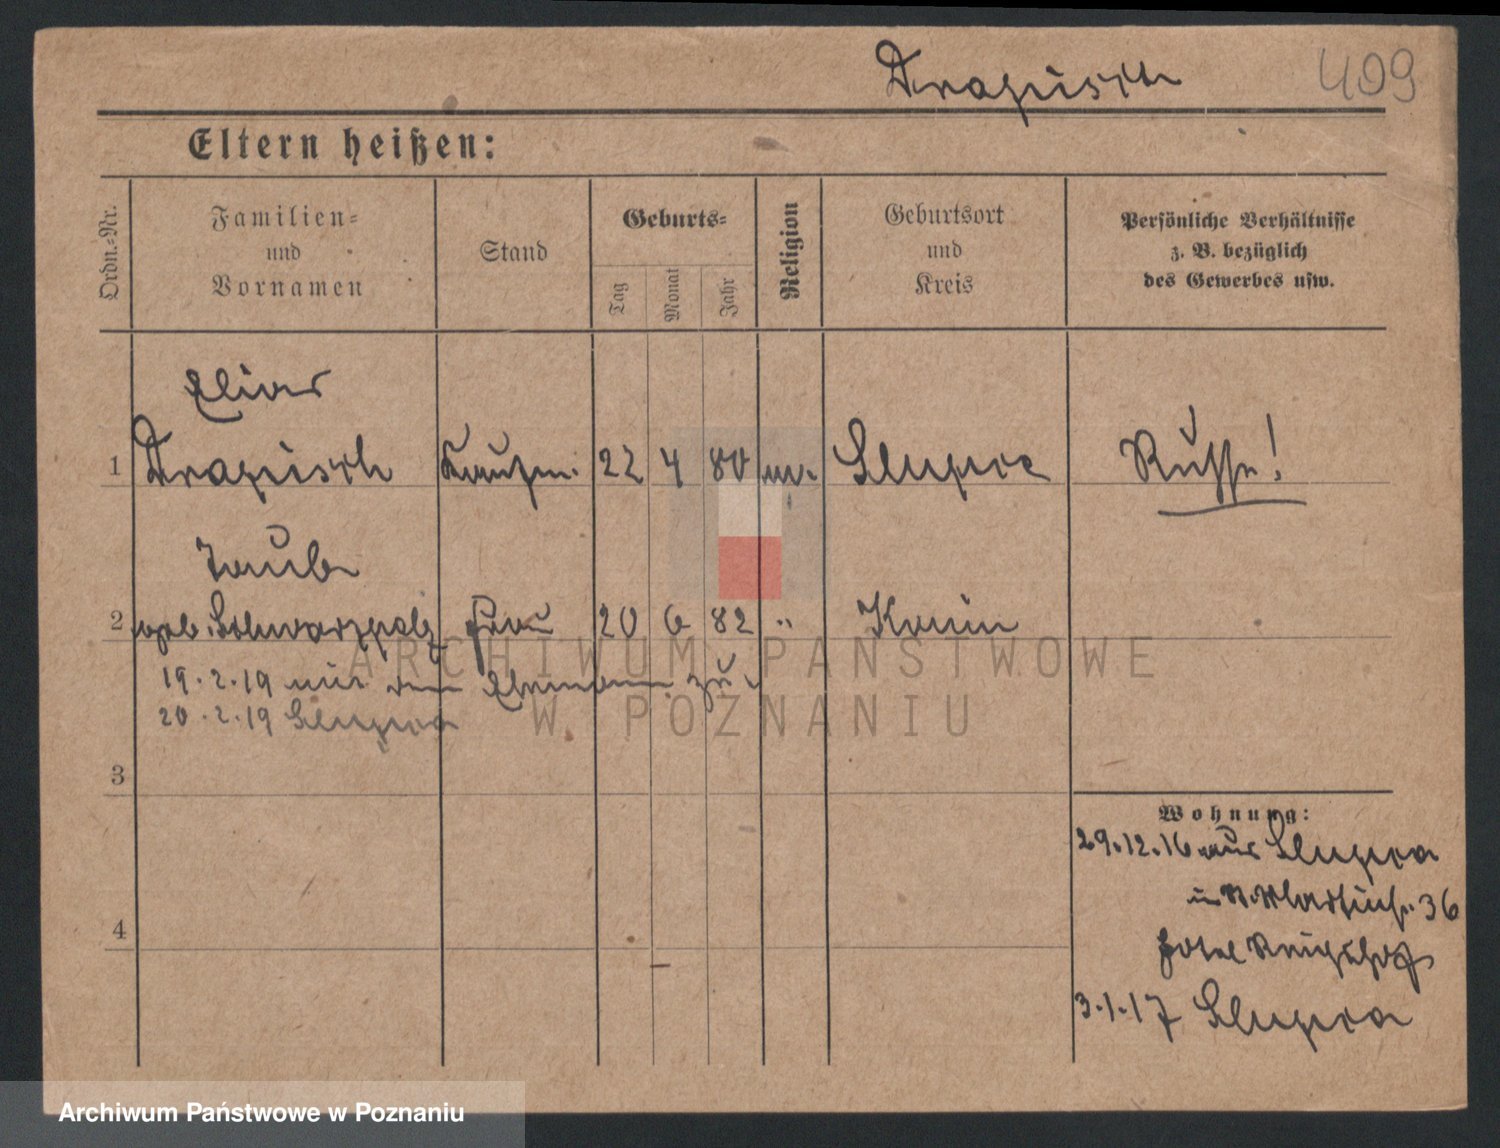 Drapisch 409
Eltern heißen:
Ordn.-Nr.
Familien-
und
Vornamen
Stand
Geburts-
Tag
Monat
Jahr
Religion
Geburtsort
und
Kreis
Persönliche Verhältnisse
z. B. bezüglich
des Gewerbes usw.
Elias
1 Drapisch Kaufm. 22 4 80 Slupca Russe!
Taube
2 geb. Frau 20 6 82 " Konin
19.2.19 mit dem Ehemann zu.
20.2.19 Slupca
3
Wohnung:
29.12.16 aus Slupca
36
4
Hotel
3.1.17 Slupca
ARCHIWUM PAŃSTWOWE
W POZNANIU
Archiwum Państwowe w Poznaniu